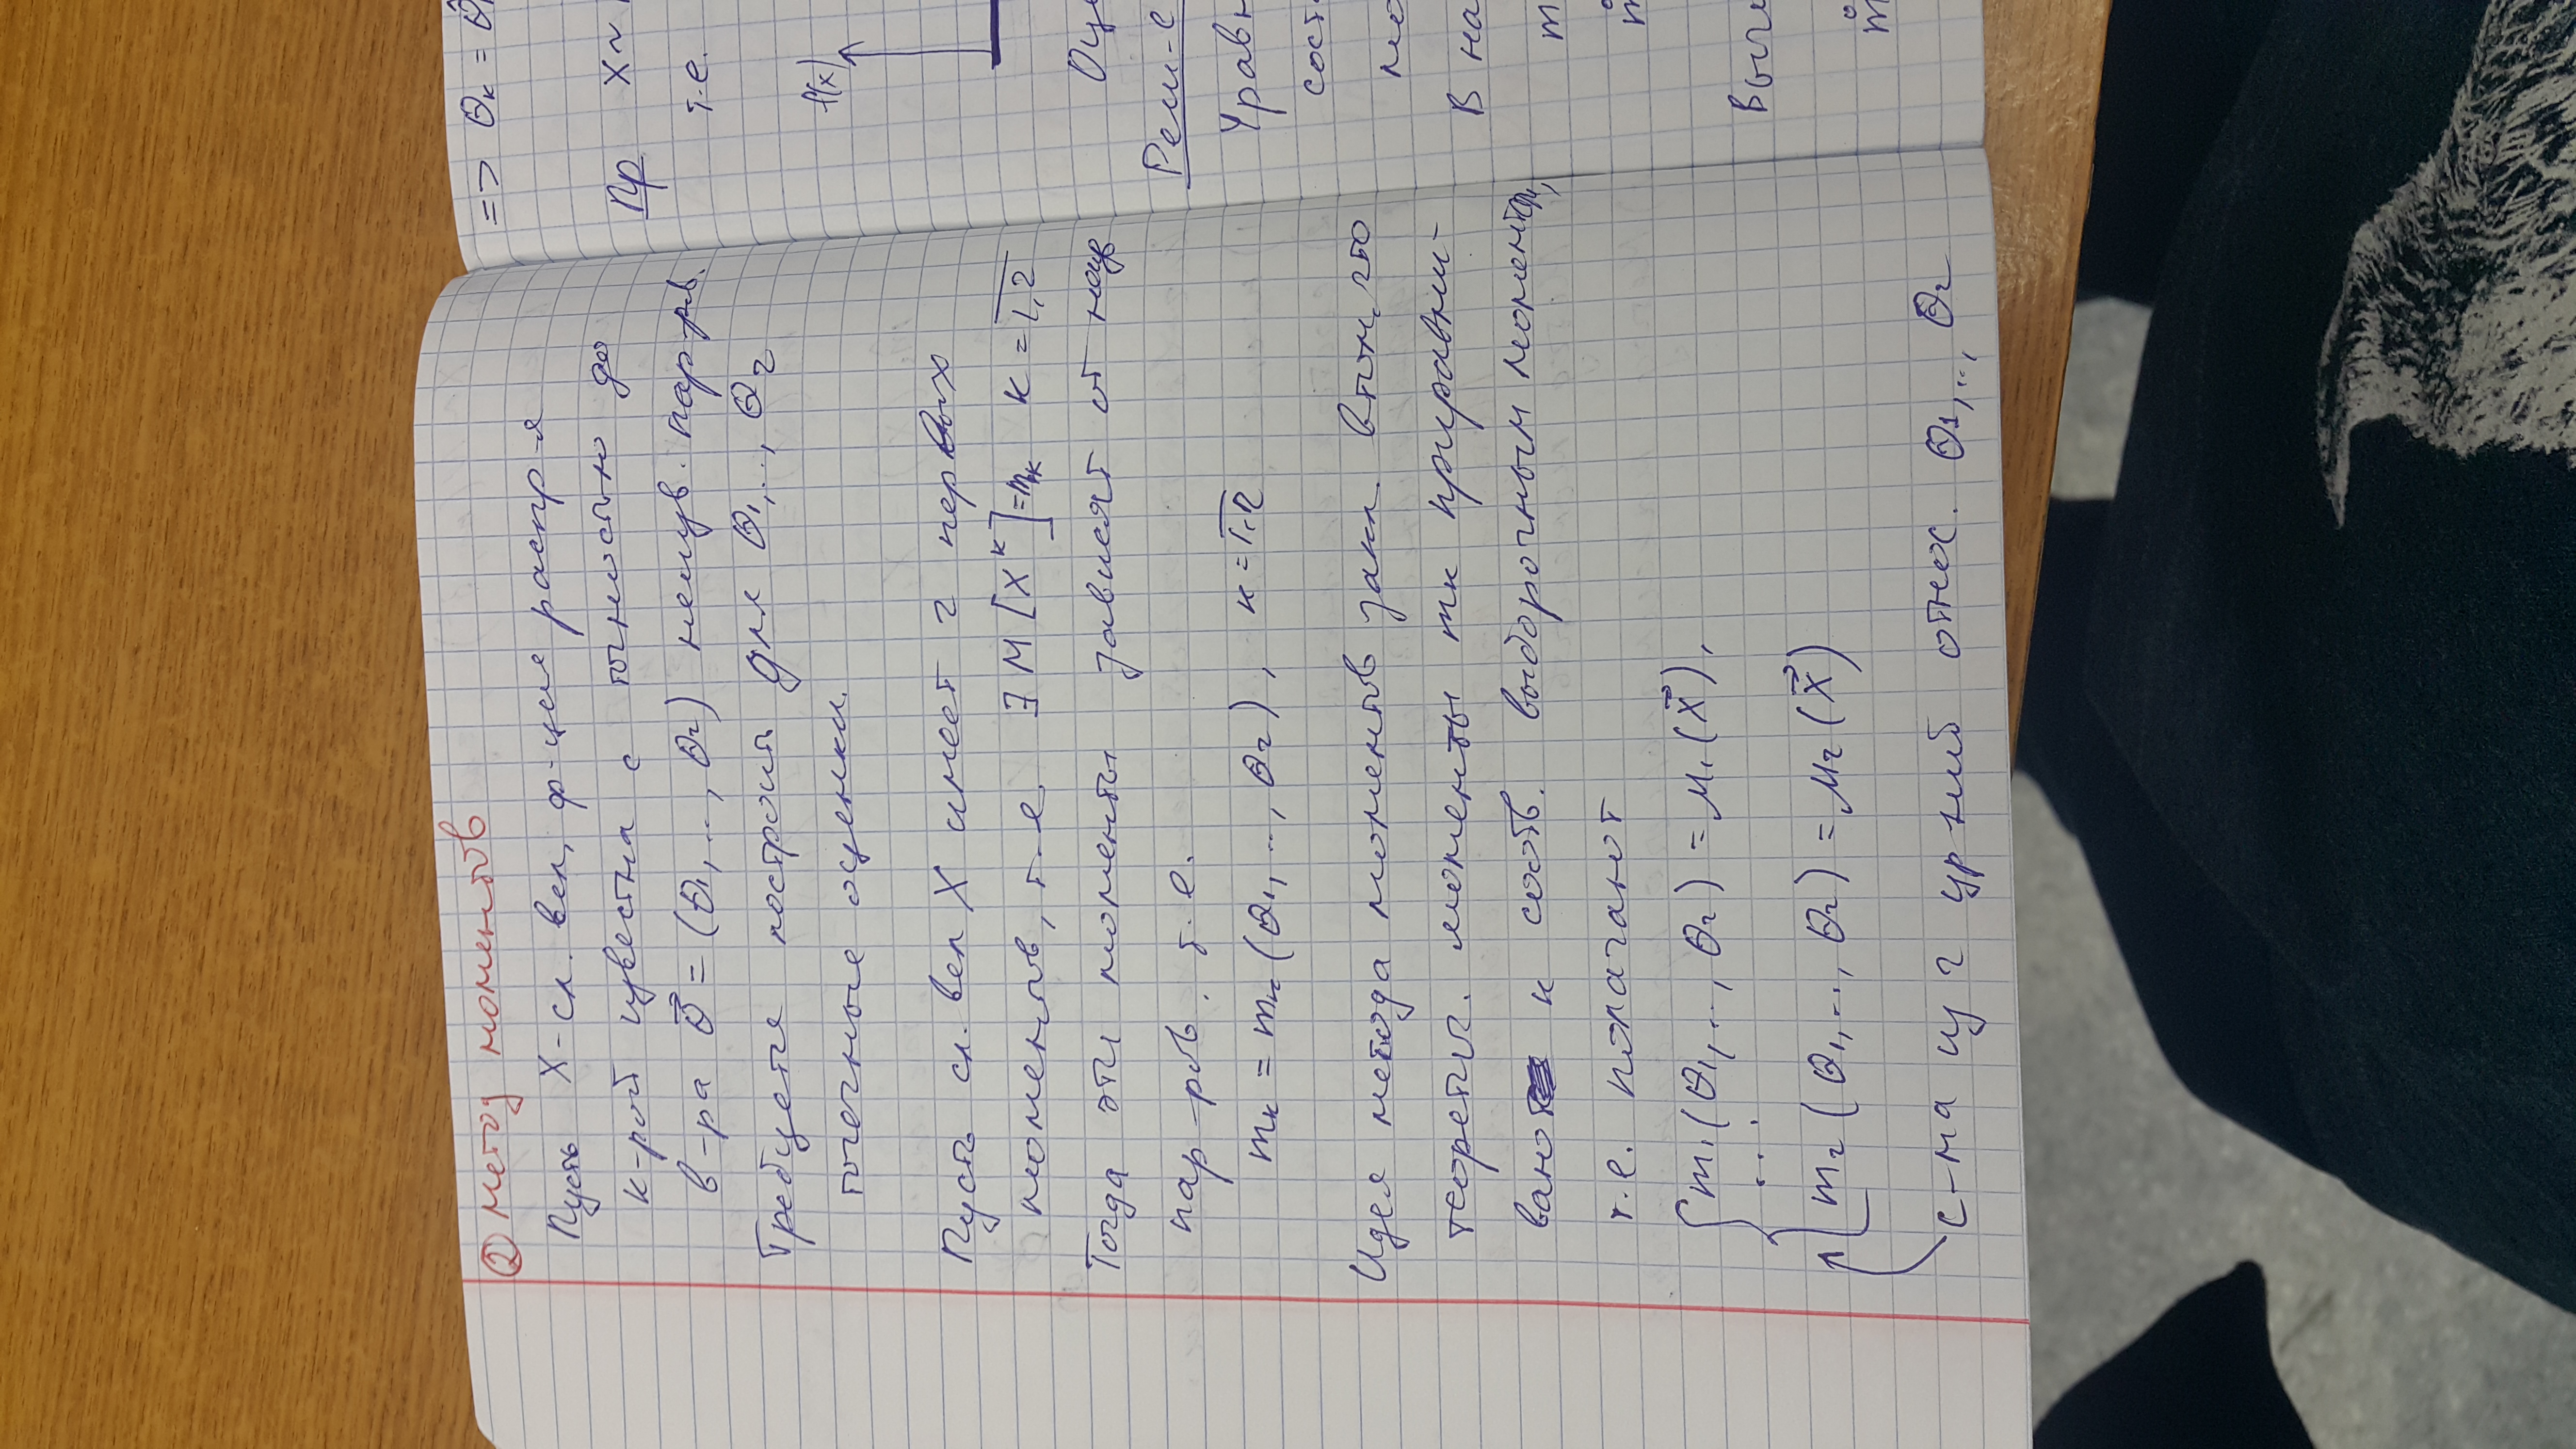 ② Метод моментов
Пусть X - сл. вел, ф-ция распр-я
к-рой известна с точностью до
в-ра θ⃗ = (θ₁, .., θr) неизв. пар-ров.
Требуется построить для θ₁, .., θr
точечные оценки.
Пусть сл. вел X имеет r первых
моментов, т.е. ∃ M [Xᵏ] = mk к = 1,r
Тогда эти моменты зависят от неизв
пар-ров, т.е.
mк = mк (θ₁, .., θr), к = 1,r
Идея метода моментов закл. в том, что
теоретич. моменты mк приравни-
вают к соотв. выборочным моментам,
т.е. полагают
{ m₁(θ₁, .., θr) = μ₁(X⃗),
...
mr (θ₁, .., θr) = μr (X⃗)
с-ма из r ур-ний относ. θ₁, .., θr
=> θк = θ̂
Пр X ~
т.е.
f(x)
Оце
Реш-е
Уравн
сост
мо
В на
m
m̊
Вычи
m̊